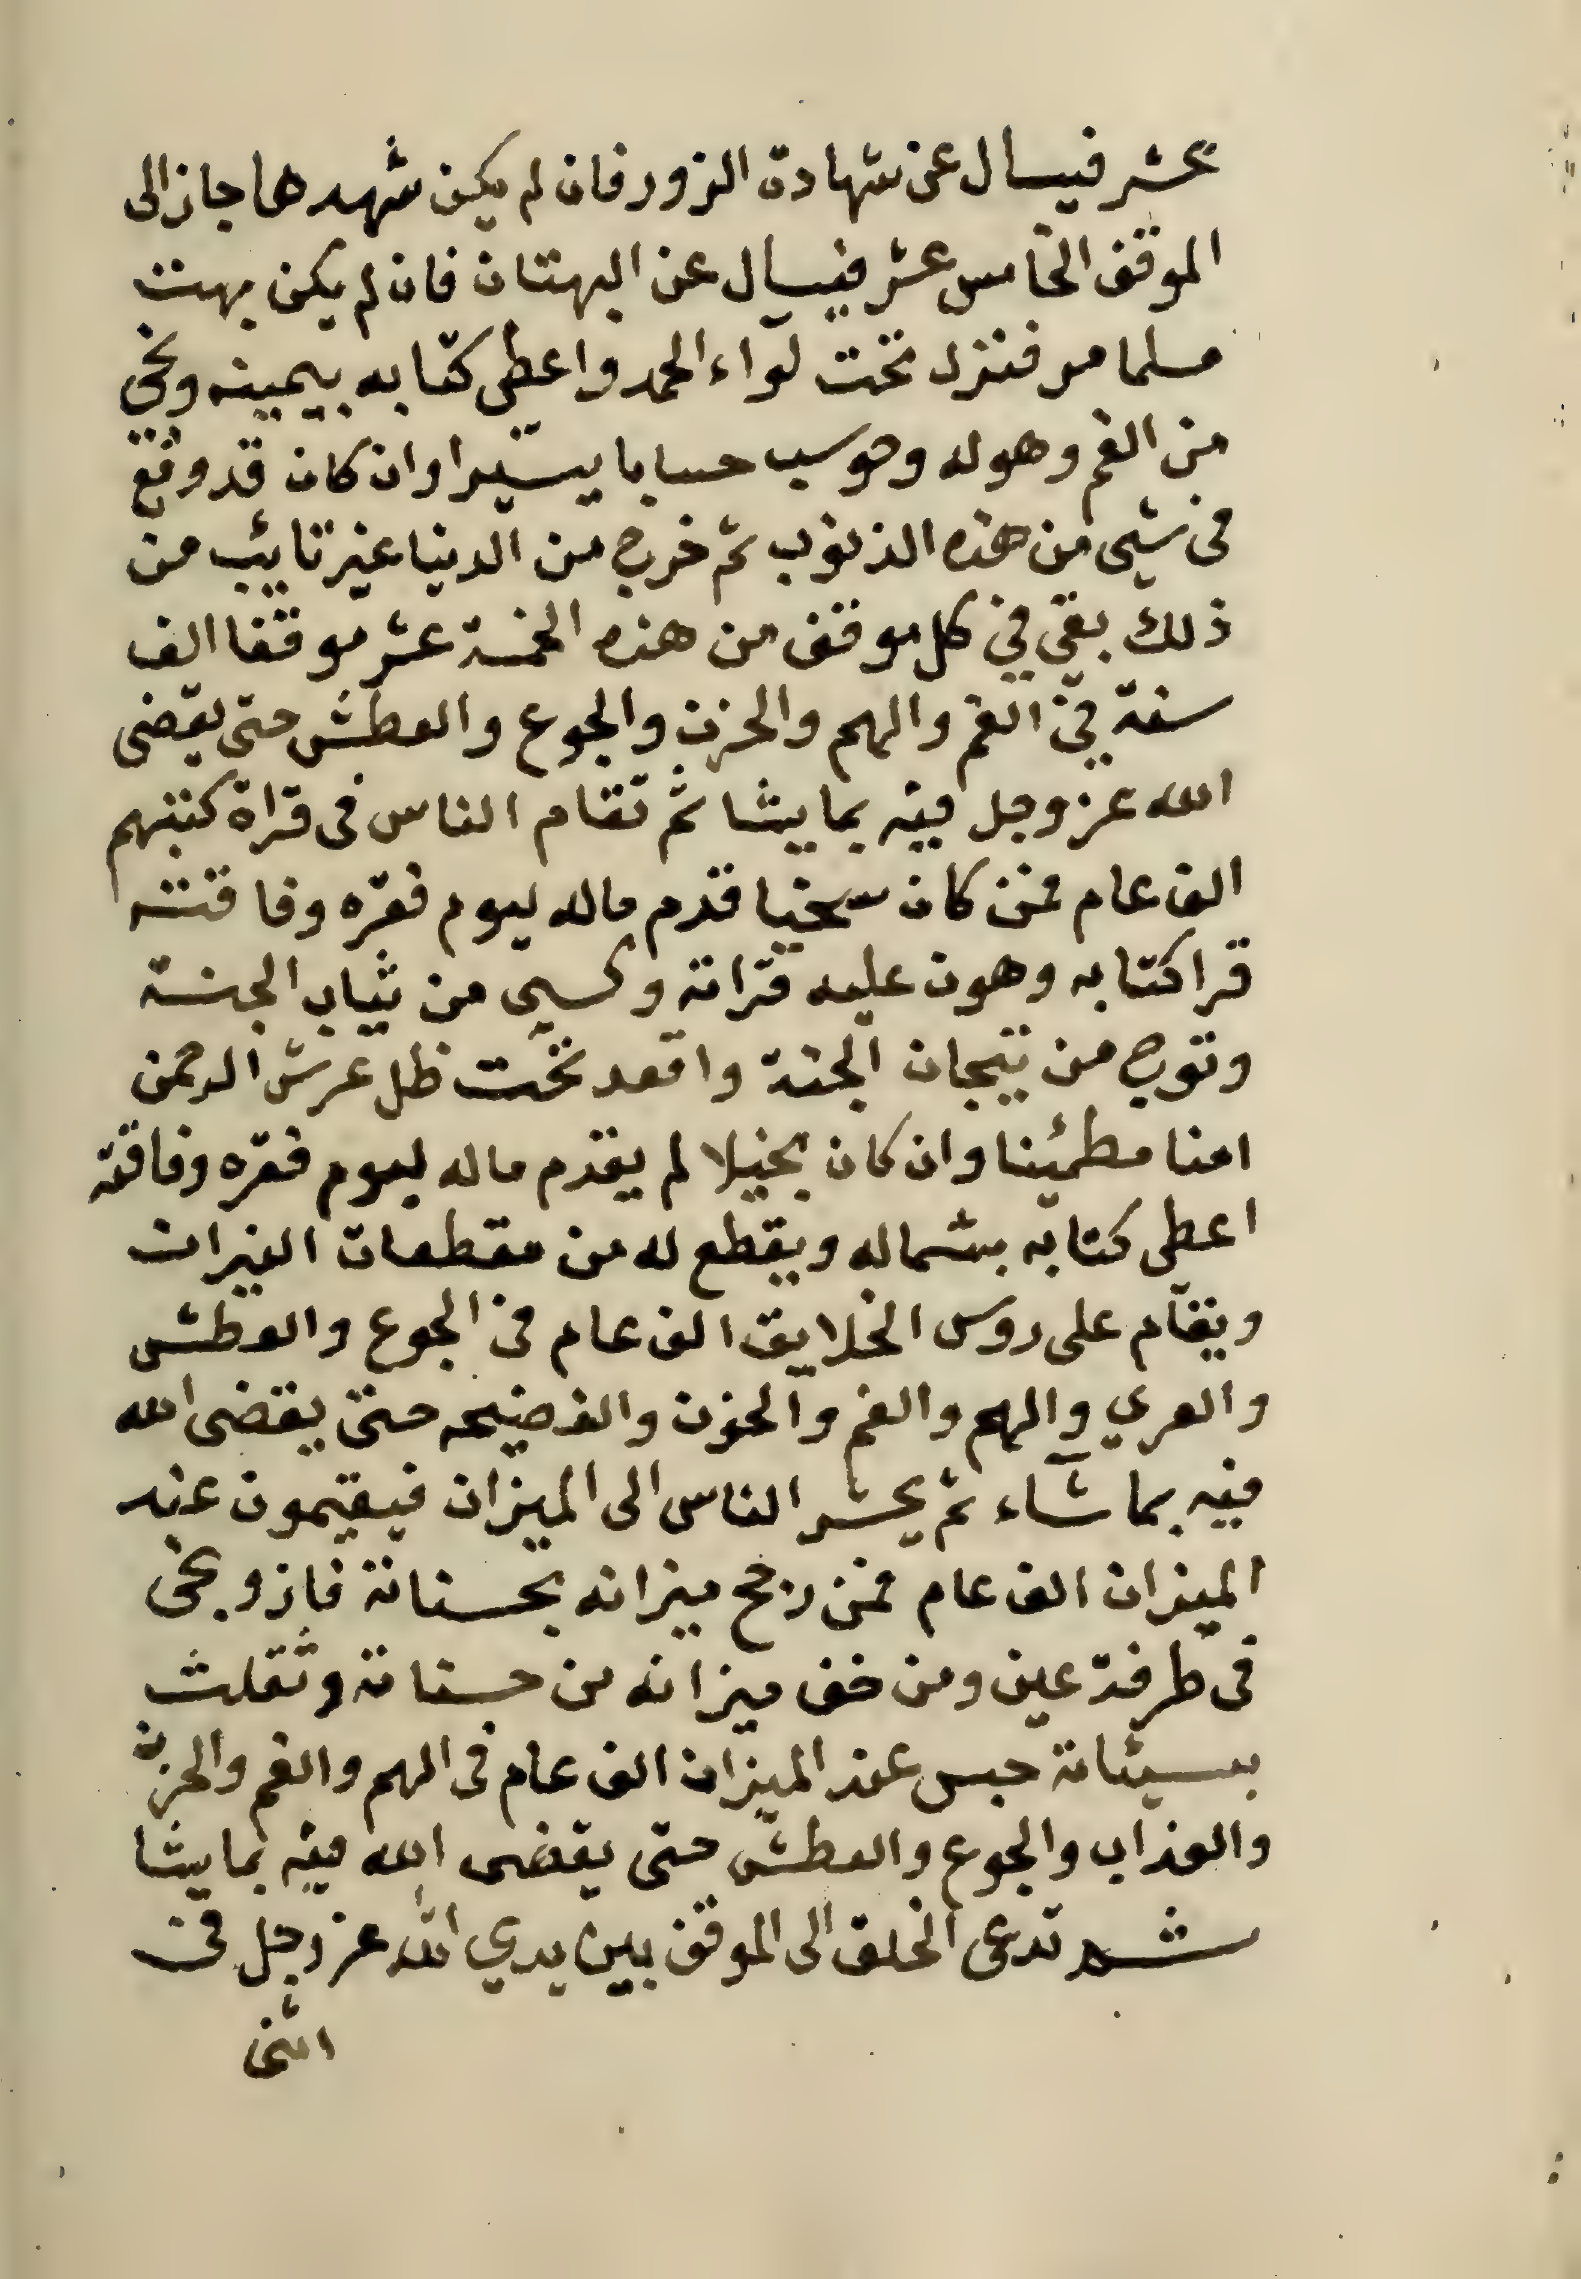 عشر فيسال عن شهادة الزور فان لم يكن شهدها جاز الى
الموقف الخامس عشر فيسال عن البهتان فان لم يكن بهت
مسلما مر فنزل تحت لواء الحمد واعطى كتابه بيمينه ونجي
من الغم وهوله وحوسب حسابا يسيرا وان كان قد وقع
في شيى من هذه الذنوب ثم خرج من الدنيا غير تايئب من
ذلك بقي في كل موقف من هذه الخمسة عشر موقفا الف
سنة في الغم والهم والحزن والجوع والعطش حتى يقضى
الله عز وجل فيه بما يشا ثم تقام الناس في قراة كتبهم
الف عام فمن كان سخيا قدم ماله ليوم فقره وفاقته
قرا كتابه وهون عليه قراته وكسي من ثياب الجنة
وتوج من تيجان الجنة واقعد تحت ظل عرش الرحمن
امنا مطمئنا وان كان بخيلا لم يقدم ماله ليوم فقره وفاقته
اعطى كتابه بشماله ويقطع له من مقطعات النيران
ويقام على روس الخلايق الف عام في الجوع والعطش
والعري والهم والغم والحزن والفضيحه حتى يقضى الله
فيه بما شآء ثم يحشر الناس الى الميزان فيقيمون عند
الميزان الف عام فمن رجح ميزانه بحسناته فاز ونجى
في طرفة عين ومن خف ميزانه من حسناته وثقلت
بسيئاته حبس عند الميزان الف عام في الهم والغم والحزن
والعذاب والجوع والعطش حتى يقضى الله فيه بما يشا
ثم تدعى الخلق الى الموقف بين يدي الله عز وجل في
اثنى